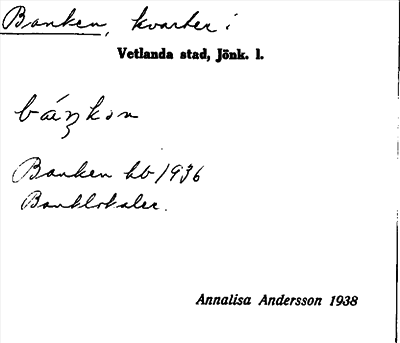 Banken, kvarter i
Vetlanda stad, Jönk. l.
báŋkən
Banken hb 1936
Banklokaler.
Annalisa Andersson 1938